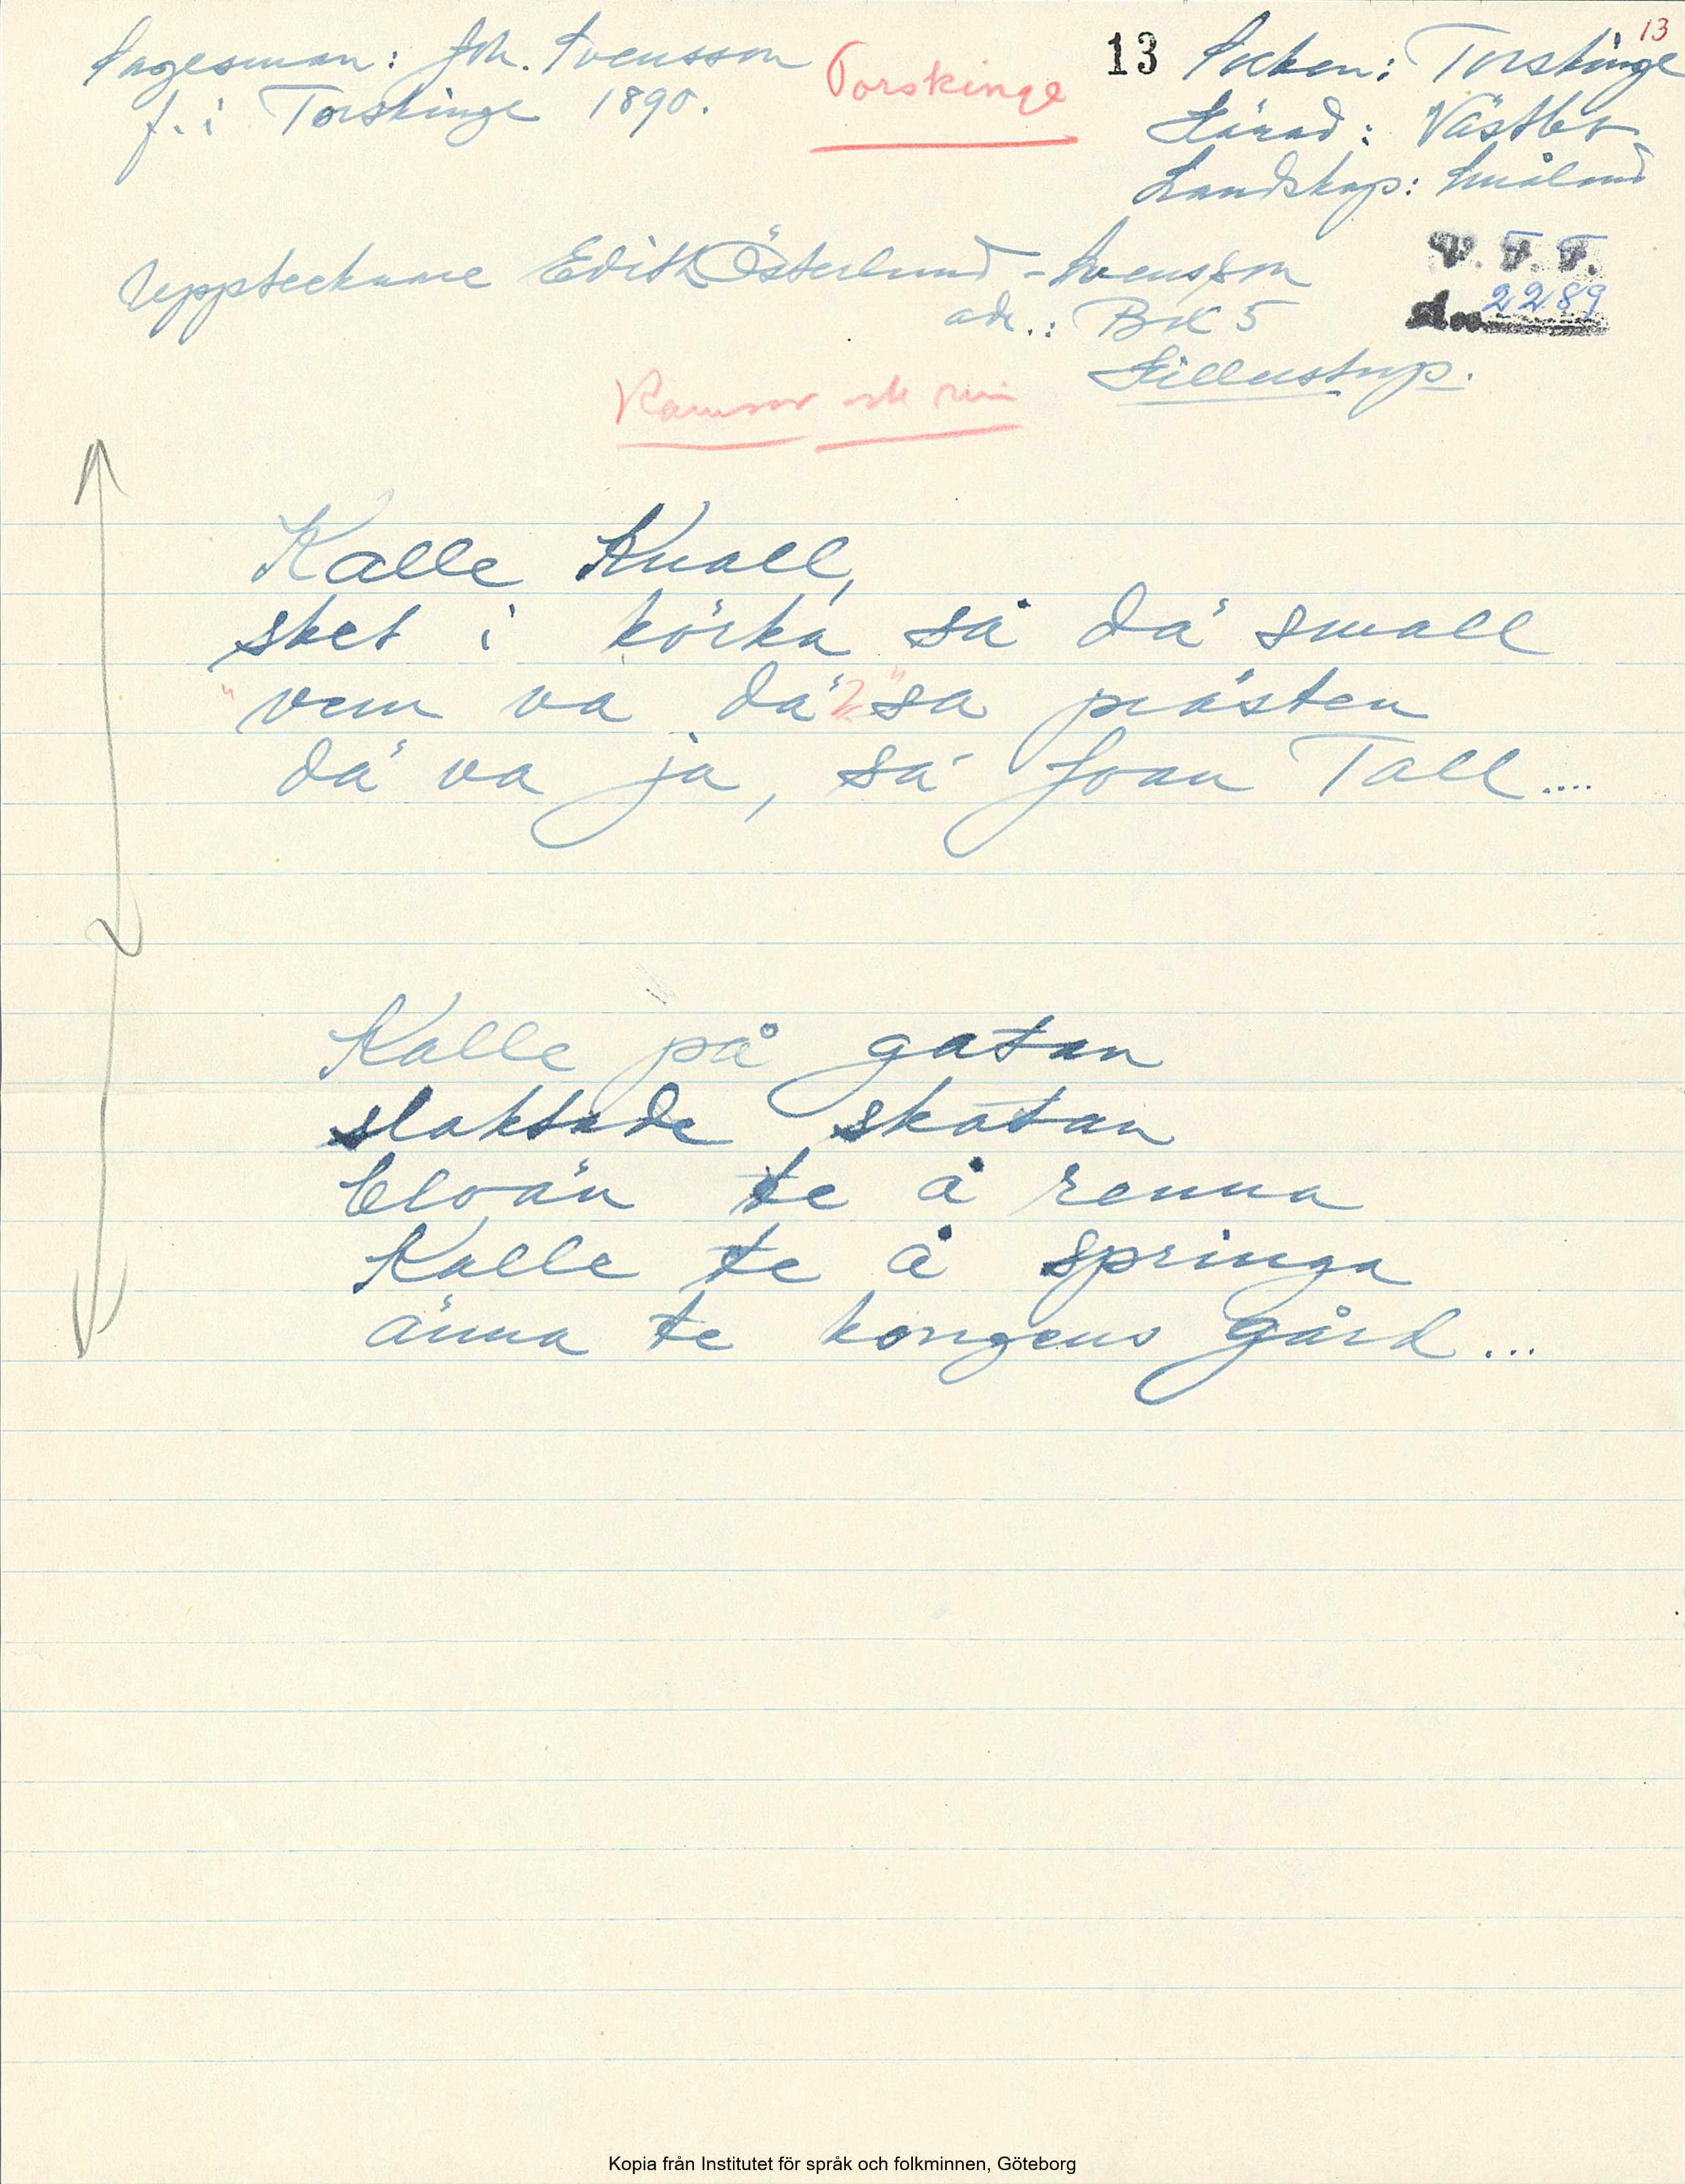 Sagesman: Joh. Svensson
f. i Torskinge 1890.
Torskinge
13
13
Socken: Torskinge
Härad: Västbo
Landskap: Småland
Upptecknare Edith Österlund-Svensson
adr.: Box 5
Hillerstorp.
V. F. F.
2289
Ramsor och rim
Kalle Knall,
sket i körka så dä small
"vem va dä?" sa prästen
dä va ja, sa Joan Tall....
Kalle på gatan
slaktade skatan
Eloän te å renna
Kalle te å springa
änna te kongens gård...
Kopia från Institutet för språk och folkminnen, Göteborg